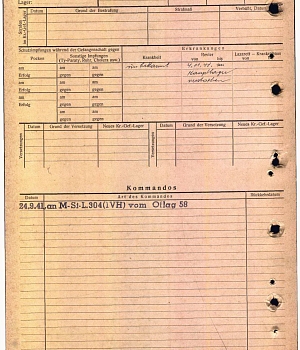 Lager:
Datum Grund der Bestrafung Strafmaß Verbüßt, Datum
Strafen im Kr.-Gef.-Lager
Schutzimpfungen während der Gefangenschaft gegen Erkrankungen
Pocken Sonstige Impfungen (Ty-Paraty, Ruhr, Cholera usw.) Krankheit Revier von bis Lazarett – Krankenhaus von bis
am am gegen 4.11.41 an
Erfolg gegen
am am gegen verstorben
Erfolg gegen
am am gegen
Erfolg gegen
am am gegen
Datum Grund der Versetzung Neues Kr.-Gef.-Lager Datum Grund der Versetzung Neues Kr.-Gef.-Lager
Versetzungen Versetzungen
Kommandos
Datum Art des Kommandos Rückkehrdatum
24.9.41. an M-St-L.304(IVH) vom Oflag 58